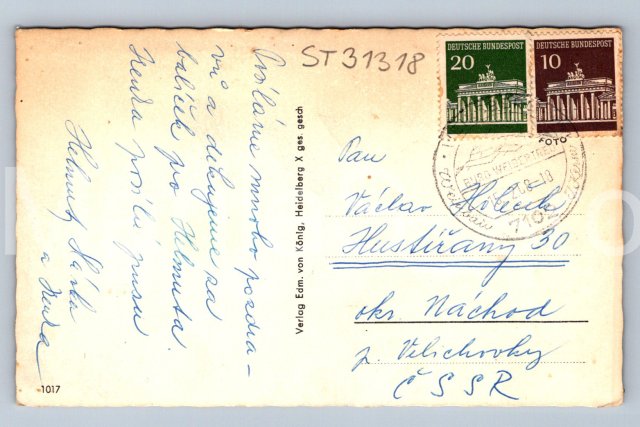 ST 31318
DEUTSCHE BUNDESPOST
20
DEUTSCHE BUNDESPOST
10
FOTO
7102
Posíláme mnoho pozdra-
vů a děkujeme za
balíček po Helmuta.
Zdenka pošle písmo
Helmut, Slávka
a Zdenka
Verlag Edm. von König, Heidelberg X ges. gesch
1017
Pan
Václav Holeček
Hustířany 30
okr. Náchod
p. Velichovky
ČSSR